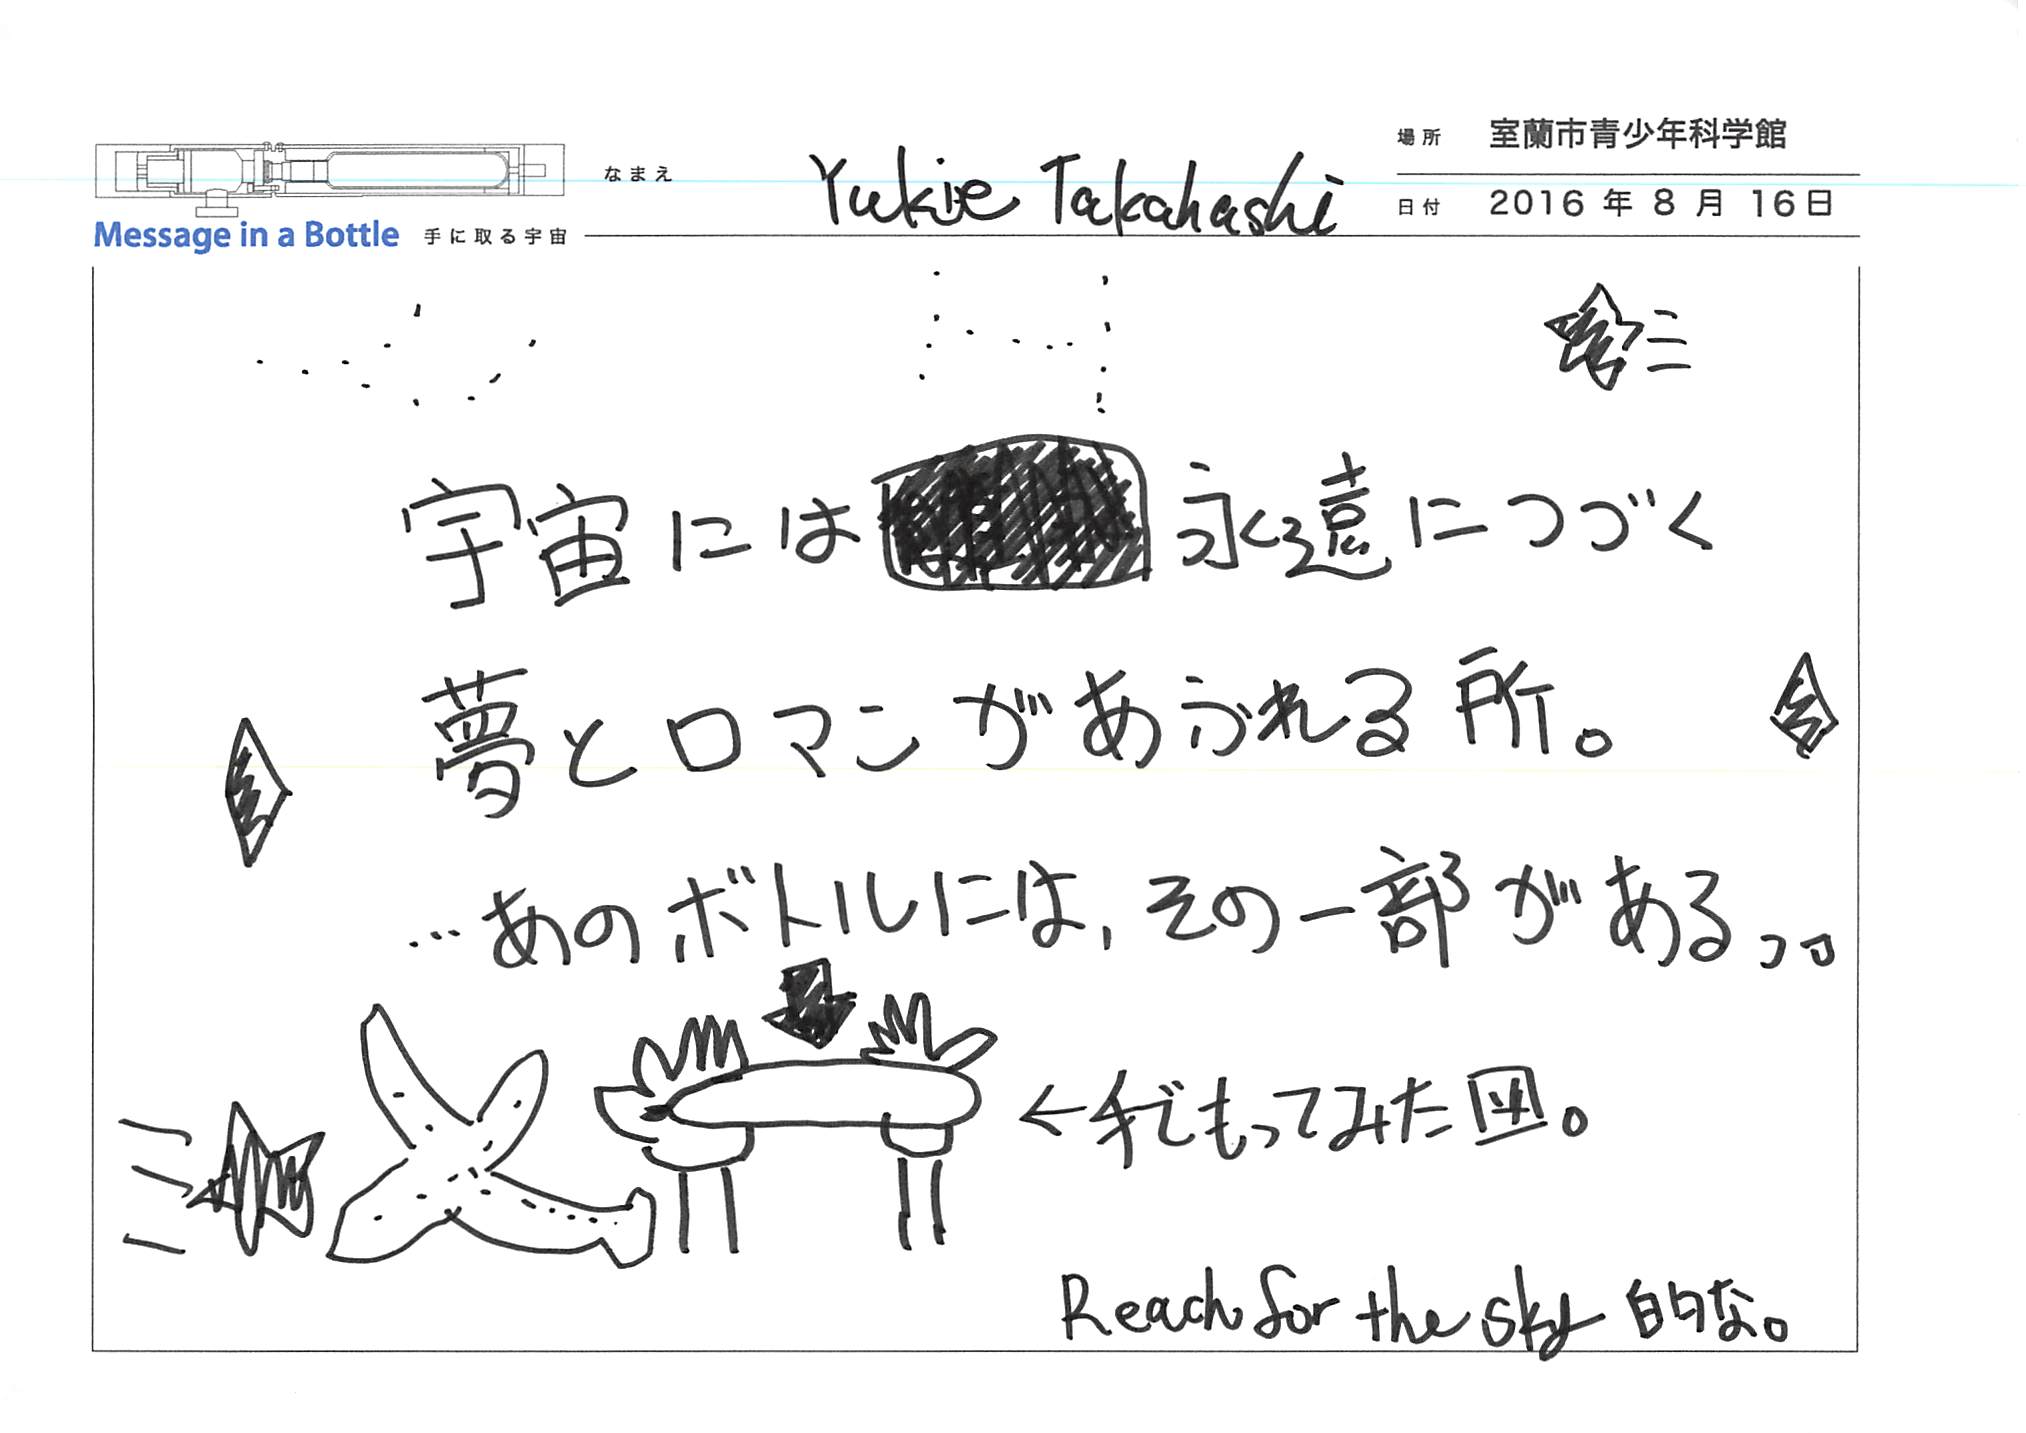 場所 室蘭市青少年科学館
なまえ Yukie Takahashi
日付 2016 年 8 月 16日
Message in a Bottle 手に取る宇宙
宇宙には 永遠につづく
夢とロマンがあふれる所。
…あのボトルには、その一部がある。。
←手でもってみた図。
Reach for the sky 的な。